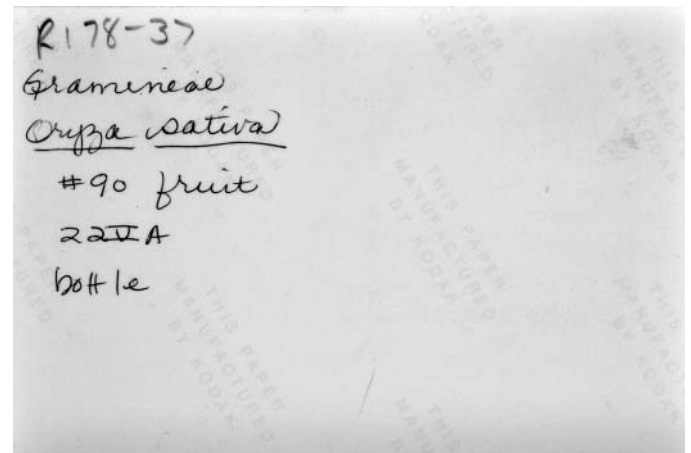 R178-37
Gramineae
Oryza sativa
#90 fruit
22VA
bottle
THIS PAPER
MANUFACTURED
BY KODAK